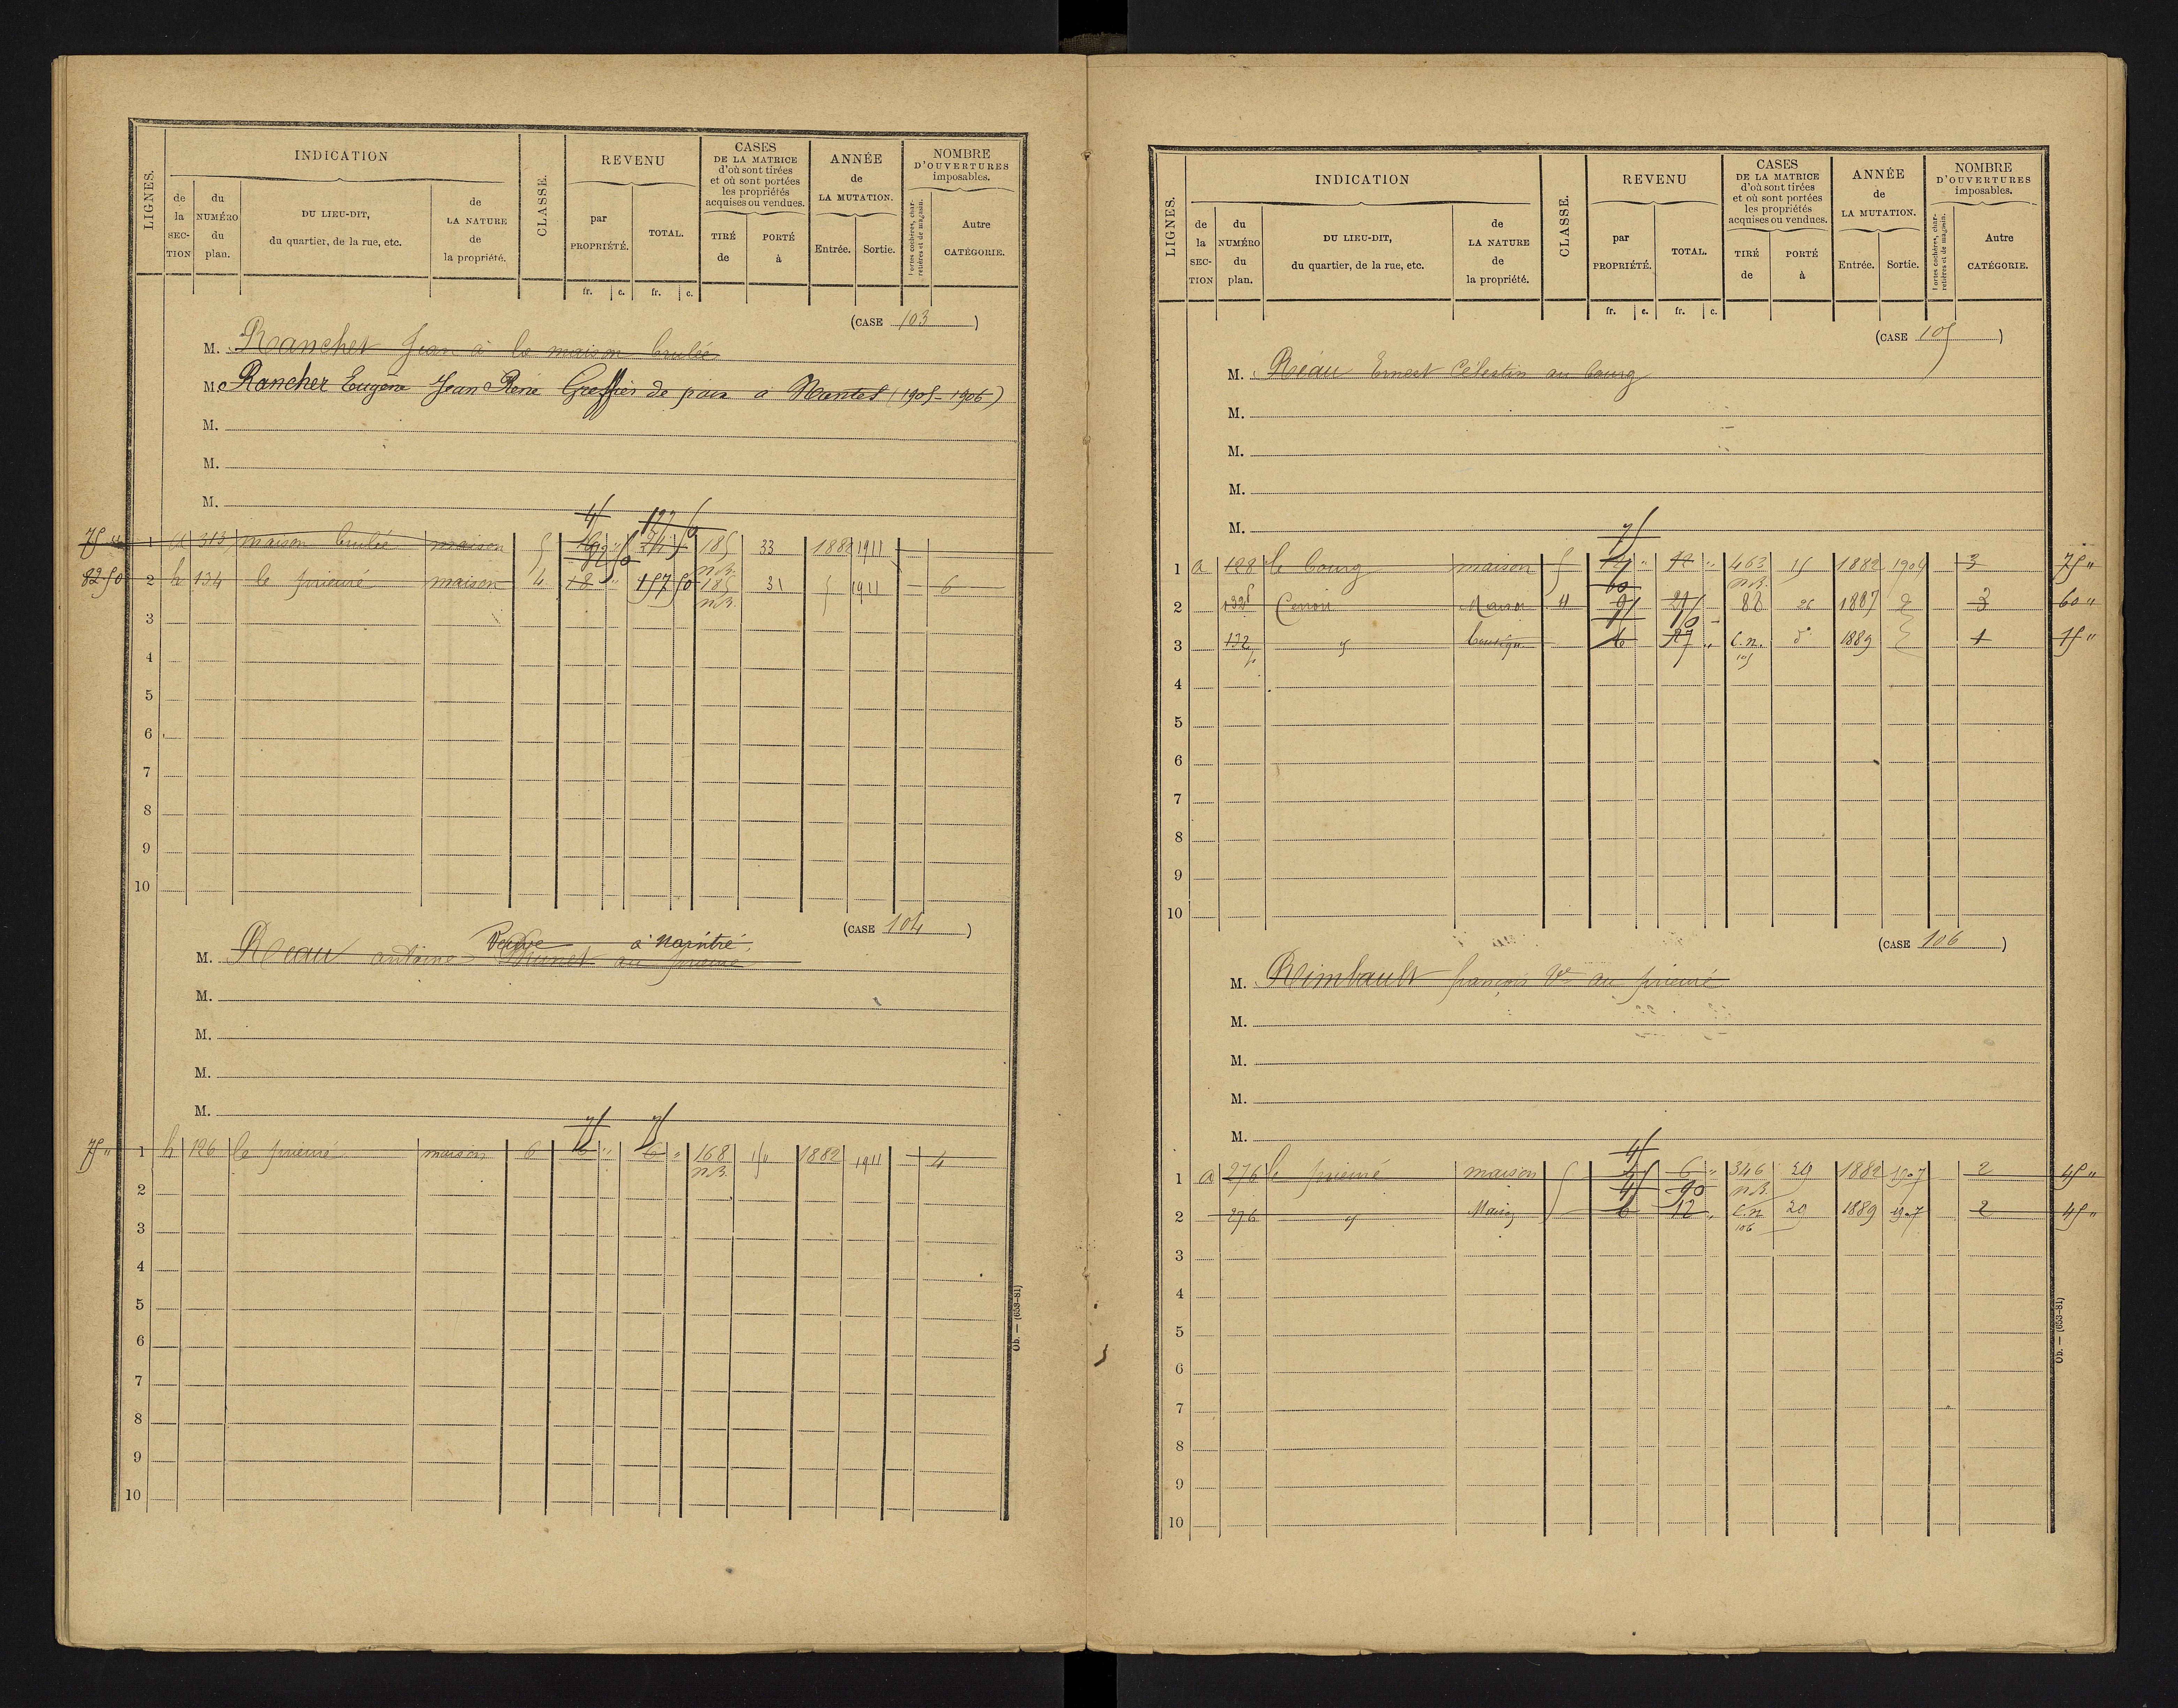 LIGNES.
INDICATION
de la SECTION
du NUMÉRO du plan.
DU LIEU-DIT, du quartier, de la rue, etc.
de LA NATURE de la propriété.
CLASSE.
REVENU
par PROPRIÉTÉ.
TOTAL.
CASES DE LA MATRICE d'où sont tirées et où sont portées les propriétés acquises ou vendues.
TIRÉ de
PORTÉ à
ANNÉE de LA MUTATION.
Entrée.
Sortie.
NOMBRE D'OUVERTURES imposables.
Portes cochères, charretières et de magasin.
Autre CATÉGORIE.
fr. c. fr. c.
(CASE 103)
M. Rancher Jean à la maison brulée
M. Rancher Eugène Jean René Greffier de paix à Nantes (1905-1906)
M.
M.
M.
1 a 313 maison brulée maison 5 185 33 1882 1911
n.B.
82 50 2 h 134 le prieuré maison 4 18 157 50 185 31 1911 6
n.B.
3
4
5
6
7
8
9
10
(CASE 104)
Veuve à Naintré
M. Reau antoine Brunet au prieuré
M.
M.
M.
M.
75 75
75 " 1 h 126 le prieuré maison 6 6 " 6 " 168 1882 1911 4
n.B.
2
3
4
5
6
7
8
9
10
Ob. — (653-81)
LIGNES.
INDICATION
de la SECTION
du NUMÉRO du plan.
DU LIEU-DIT, du quartier, de la rue, etc.
de LA NATURE de la propriété.
CLASSE.
REVENU
par PROPRIÉTÉ.
TOTAL.
CASES DE LA MATRICE d'où sont tirées et où sont portées les propriétés acquises ou vendues.
TIRÉ de
PORTÉ à
ANNÉE de LA MUTATION.
Entrée.
Sortie.
NOMBRE D'OUVERTURES imposables.
Portes cochères, charretières et de magasin.
Autre CATÉGORIE.
fr. c. fr. c.
(CASE 105)
M. Réau Ernest Célestin au bourg
M.
M.
M.
M.
75
1 a 128 le bourg maison 5 12 " 12 " 463 15 1882 1904 3 75 "
60 n.B.
2 Maison 4 88 26 1887 3 60 "
3 132 boutique 6 27 " C.n. d° 1889 1 15 "
105
4
5
6
7
8
9
10
(CASE 106)
M. Rimbault françois Ve au prieuré
M.
M.
M.
M.
45
1 a 276 le prieuré maison 5 6 " 346 29 1882 1907 2 45 "
45 90 n.B.
2 276 Maison 5 6 12 " C.n. 20 1889 1907 2 45 "
106
3
4
5
6
7
8
9
10
Ob. — (653-81)